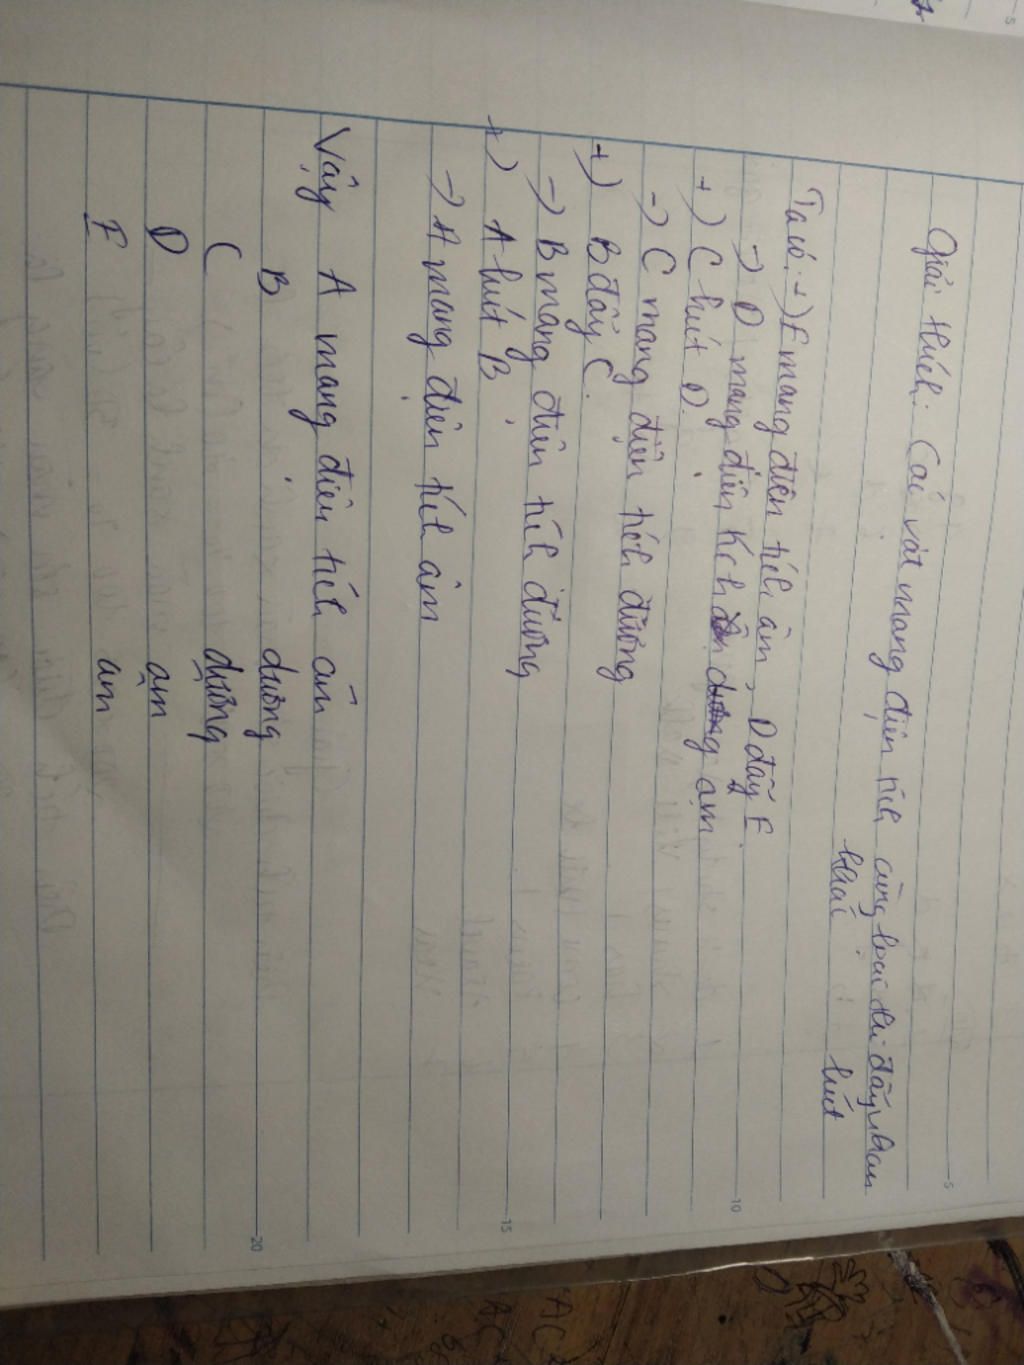 Giải thích: Các vật mang điện tích cùng loại thì đẩy nhau
khác hút
Ta có: +) E mang điện tích âm, D đẩy E.
-) D mang điện tích dương âm
+) C hút D.
-) C mang điện tích dương
+) B đẩy C.
-) B mang điện tích dương
+) A hút B
-) A mang điện tích âm
Vậy A mang điện tích âm
B dương
C dương
D âm
E âm
5
10
15
20